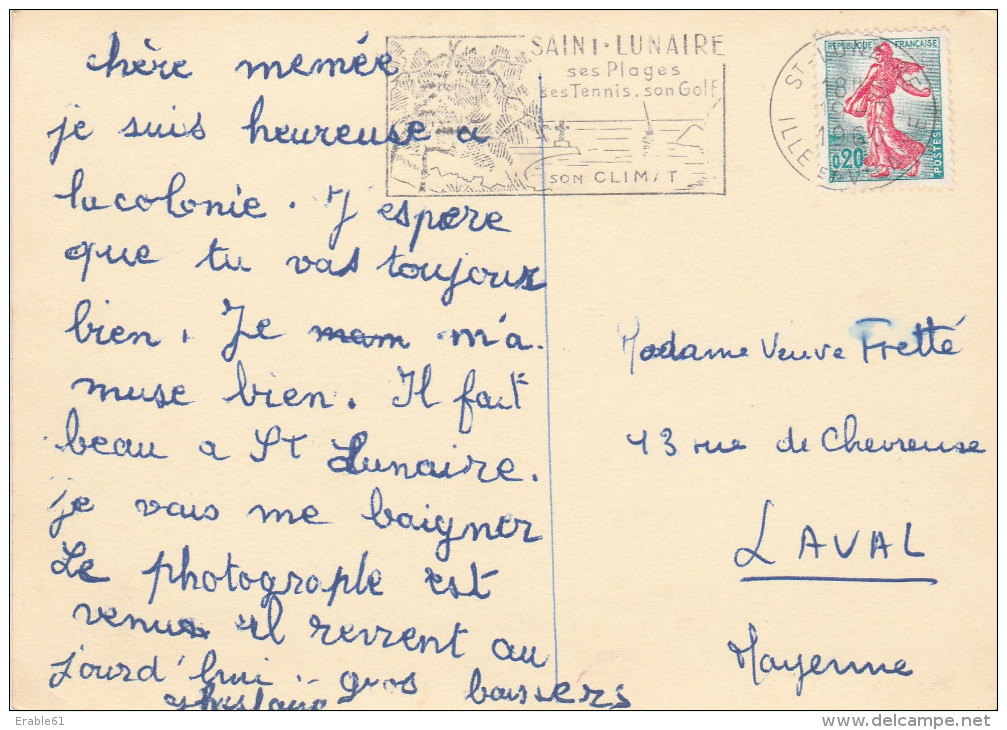 chère memée
je suis heureuse a
la colonie. J'espere
que tu vas toujours
bien. Je mam m'a.
muse bien. Il fait
beau a St Lunaire.
je vais me baigner
Le photographe est
venus il revient au
jourd'hui gros baisers
SAINT-LUNAIRE
ses Plages
ses Tennis. son Golf
SON CLIMAT
REPUBLIQUE FRANÇAISE
0,20
POSTES
Madame Veuve Fretté
43 rue de Chevreuse
LAVAL
Mayenne
Erable61
www.delcampe.net